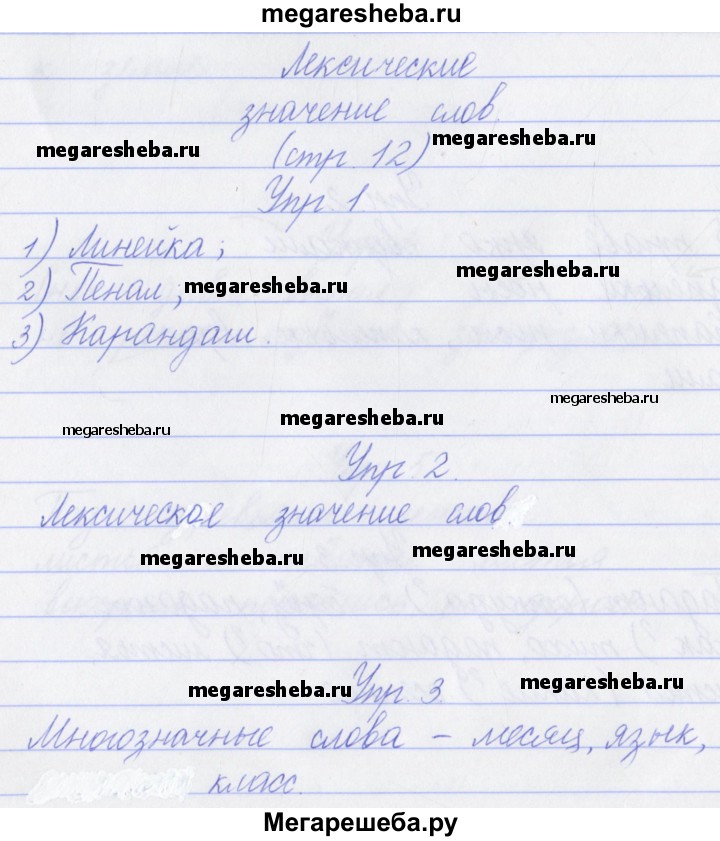 megaresheba.ru
Лексические
значение слов.
megaresheba.ru
megaresheba.ru
(стр. 12)
Упр. 1
1) Линейка;
megaresheba.ru
2) Пенал;
megaresheba.ru
3) Карандаш.
megaresheba.ru
megaresheba.ru
megaresheba.ru
Упр. 2.
Лексическое значение слов.
megaresheba.ru
megaresheba.ru
Упр. 3
megaresheba.ru
megaresheba.ru
Многозначные слова – месяц, язык,
класс.
Мегарешеба.ру